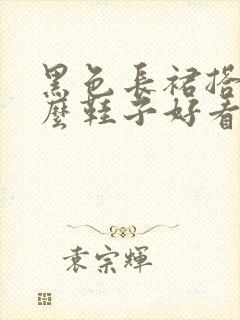 黑色長裙搭
麼鞋子好看
袁宗輝